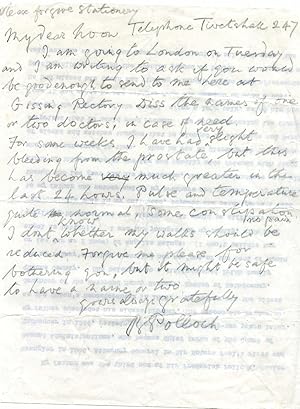 Please forgive stationery
My dear Moon Telephone Tivetshall 247
I am going to London on Tuesday
and I am writing to ask if you would
be good enough to send to me here at
Gissing Rectory Diss the names of one
or two doctors, in case of need
For some weeks I have had very slight
bleeding from the prostate, but this
has become very much greater in the
last 24 hours. Pulse and temperature
quite normal, Some constipation
I dont know whether my walks should be
reduced. Forgive me please for
bothering you, but it might be safe
to have a name or two
yours always gratefully
Pollock